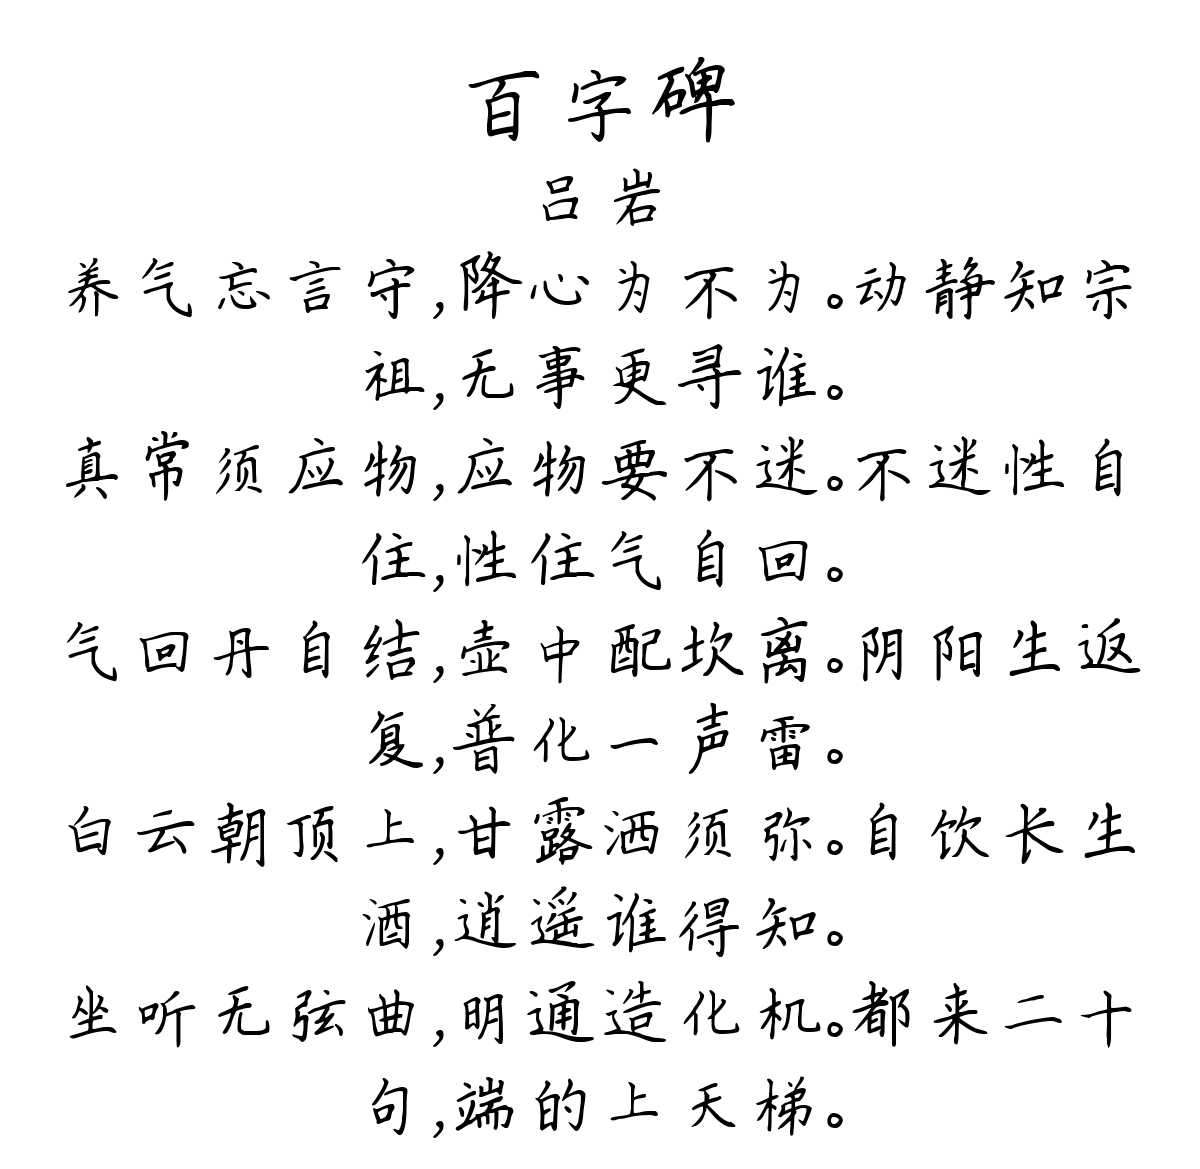 百字碑
吕岩
养气忘言守,降心为不为。动静知宗
祖,无事更寻谁。
真常须应物,应物要不迷。不迷性自
住,性住气自回。
气回丹自结,壶中配坎离。阴阳生返
复,普化一声雷。
白云朝顶上,甘露洒须弥。自饮长生
酒,逍遥谁得知。
坐听无弦曲,明通造化机。都来二十
句,端的上天梯。